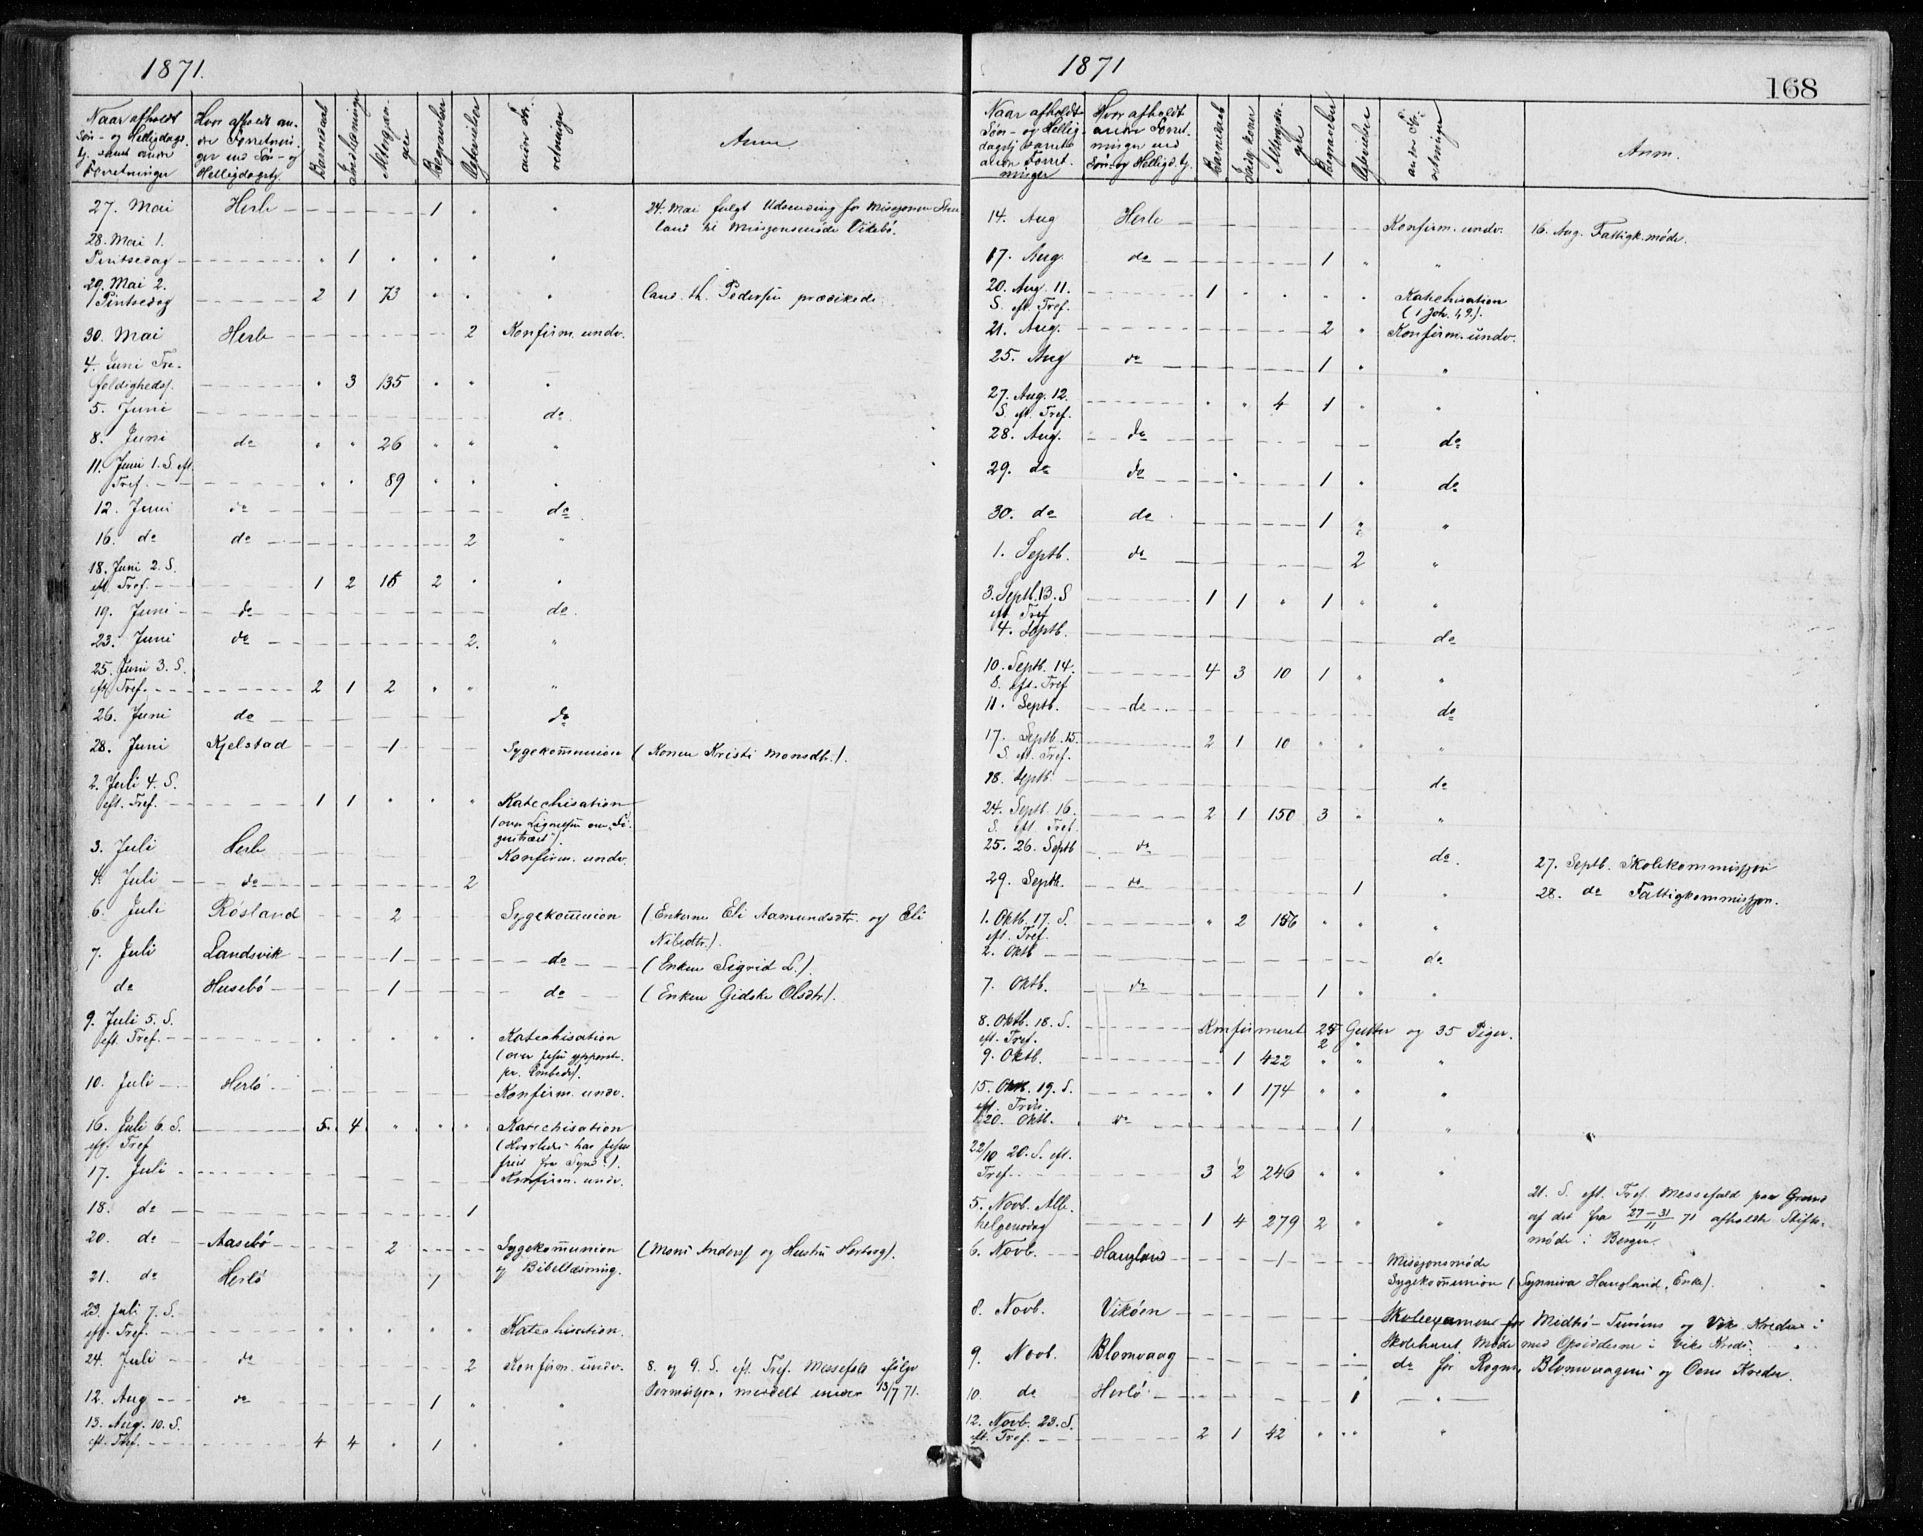 1871.
Naar afholdt
Søn- og Helligdags
tj. samt andre
Forretninger
Hvor afholdt an-
dre Forretnin-
ger end Søn- og
Helligdagstj.
Barnedaab
Indledninger
Altergjæn-
gere
Begravelser
Gjevielser
andre For-
retninger
Anm
27. Mai Herlø 1 " " 24. Mai fulgt Udsending for Missjonen
land til Missjonsmøde Videbø.
28. Mai 1.
Pintsedag " 1 " " " "
29. Mai 2.
Pintsedag 2 1 73 " " " Cand. th. Pedersen prædikede
30. Mai Herlø 2 Konfirm. undv.
4. Juni Tre-
foldighedsf. " 3 135 " " "
5. Juni do
8. Juni do " " 26 " " "
11. Juni 1. S. eft.
Tref. " " 89 " " "
12. Juni do do
16. do do 2 "
18. Juni 2. S.
eft. Tref. 1 2 16 2 " "
19. Juni do do
23. Juni do 2. "
25. Juni 3. S.
eft. Tref. 2 1 2 " " "
26. Juni do do
28. Juni Kjelstad 1 Sygekommunion (Konen Kristi Monsdtr.).
2. Juli 4. S.
eft. Tref. 1 1 " " " Katechisation
(over Lignelsen om Fi-
gentræet).
3. Juli Herlø Konfirm. undv.
4. Juli do 2
6. Juli Røsland 2 Sygekommunion (Enkerne Eli Aamundsdtr. og Eli
Nilsdtr.).
7. Juli Landsvik 1 do (Enken Sigrid L.).
do Husebø 1 do (Enken Gidske Olsdtr).
9. Juli 5. S.
eft. Tref. " " " " " Katechisation
(over Jesu ypperst-
pr. Embede).
10. Juli Herlø Konfirm. undv.
16. Juli 6. S.
eft. Tref 5. 4 " " " Katechisation
(Hvorledes har Jesus
friet fra Synd?).
17. Juli Konfirm. undv.
18. do 1
20. do Aasebø 2 Sygekommunion (Mons Anders. og Hustru Herborg).
og Bibellæsning.
21. do Herlø 1
23. Juli 7. S.
eft. Tref. " " " " " Katechisation.
24. Juli do 2 Konfirm. undv. 8. og 9. S. eft. Tref. Messefald ifølge
Permissjon, meddelt under 13/7 71.
12. Aug do 1 " "
13. Aug. 10. S.
eft. Tref. 4 4 " 1 " "
1871
168
Naar afholdt
Søn- og Hellig-
dagstj. samt
andre Forret-
ninger
Hvor afholdt
andre Forret-
ninger end
Søn- og Helligd.tj.
Barnedaab
Altergjæn-
gere
Begravelser
Gjevielser
andre For-
retninger
Anm.
14. Aug Herlø Konfirm. undv. 16. Aug. Fattigk. møde.
17. Aug. do 1 " "
20. Aug. 11.
S. eft. Tref. 1 " " " " Katechisation
(1 Joh. 1,9.).
21. Aug. 2 " Konfirm. undv.
25. Aug do 1 " "
27. Aug. 12.
S. eft. Tref. " " 4 1 " "
28. Aug. do do
29. do do " 1 " do
30. do do 1 " "
1. Septb. do 2 "
3. Septb. 13. S
eft. Tref 1 1 " 1 " "
4. Septb. do
10. Septb. 14.
S. eft. Tref 4 3 10 1 " "
11. Septb. do do
17. Septb. 15.
S. eft. Tref. 2 1 10 " " "
18. Septb. do
24. Septb. 16.
S. eft. Tref. 2 1 150 3 " "
25. 26. Septb do do. 27. Septb. Skolekommissjon
29. Septb. do 1 " 28. do Fattigkommissjon.
1. Oktb. 17. S.
eft. Tref. " 2 156 " " "
2. Oktb do
7. Oktb. do 1 " "
8. Oktb. 18. S.
eft. Tref. Konfirmeret Gutter og 35 Piger.
2 "
9. Oktb. 1 422 " " "
15. Oktb. 19. S.
eft. Tref. " 1 174 " " "
20. Oktb. do 1 "
22/10 20. S. eft.
Tref. 3 2 246 " " "
5. Novb. Alle-
helgensdag 1 4 279 2 " " 21. S. eft. Tref. Messefald paa Grund
af det fra 27-31/11 71 afholdte Stifts-
møde i Bergen.
6. Novb. Haugland 1 Missjonsmøde
Sygekommunion (Synniva Haugland, Enke).
8. Novb. Vikøen Skoleexamen for Midtbø-Turøens og Viks Kredse i
Skolehuset. Møde med Opsidderne i Viks Kreds.
9. Novb. Blomvaag do for Rogns, Blomvaagens og Oens Kredse.
10. do Herlø 1 "
12. Novb. 23. S.
eft. Tref. 2 1 42 " " " "